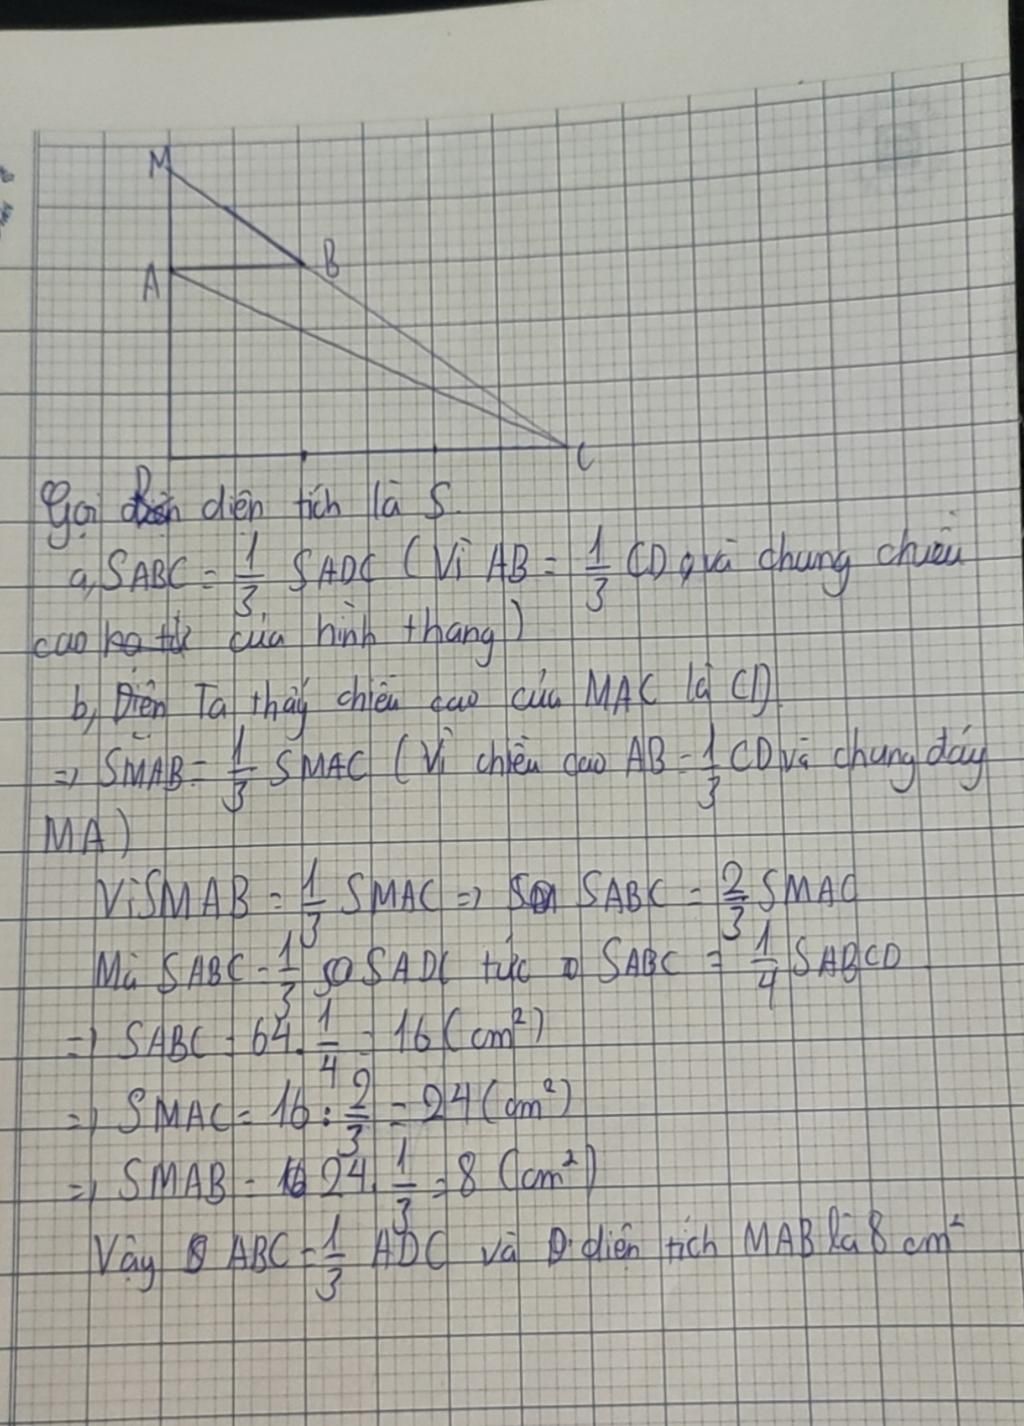 M
A
B
C
Gọi diện tích là S.
a, SABC = 1/3 SADC (Vì AB = 1/3 CD và chung chiều
cao của hình thang)
b, Ta thấy chiều cao của MAC là CD
=> SMAB = 1/3 SMAC (Vì chiều cao AB = 1/3 CD và chung đáy
MA)
Vì SMAB = 1/3 SMAC => SABC = 2/3 SMAC
Mà SABC = 1/3 SADC tức SABC = 1/4 SABCD
=> SABC = 64 . 1/4 = 16 (cm²)
=> SMAC = 16 : 2/3 = 24 (cm²)
=> SMAB = 24 . 1/3 = 8 (cm²)
Vậy ABC = 1/3 ADC và diện tích MAB là 8 cm²